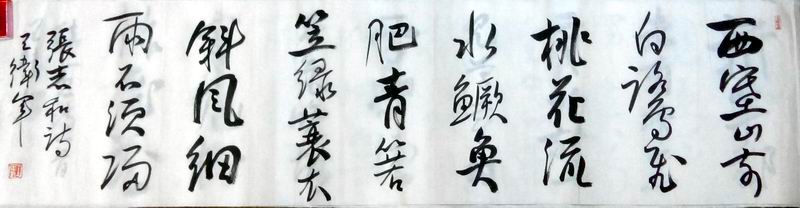 西塞山前
白鹭飞
桃花流
水鳜鱼
肥青箬
笠绿蓑衣
斜风细
雨不须归
張志和诗
王衛军